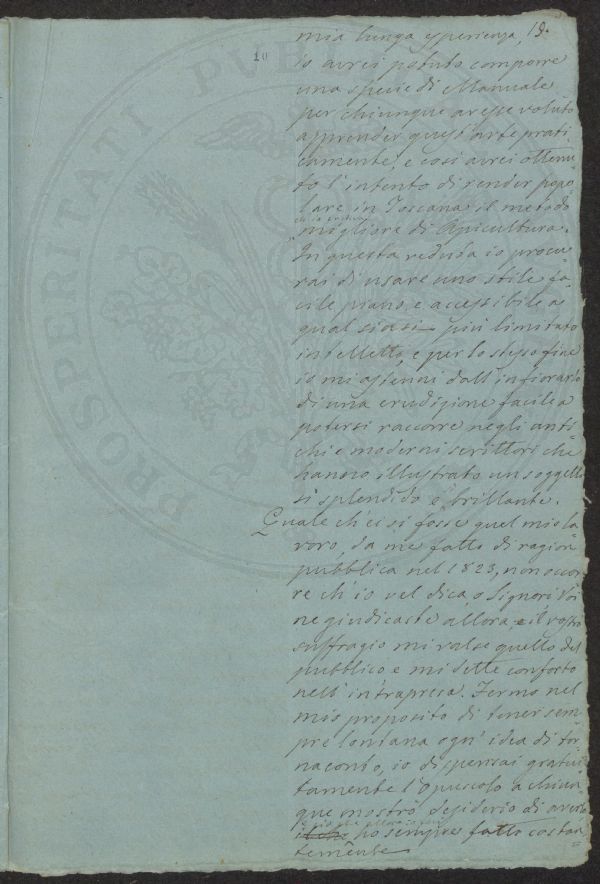 mia lunga esperienza, 19.
10
io avrei potuto comporre
una specie di Manuale
per chiunque avesse voluto
apprender quest'arte prati
camente, e così avrei ottenu
to l'intento di render popo
lare in Toscana il metodo
migliore di Apicultura.
In questa veduta io procu
rai di usare uno stile fa
cile piano, e accessibile a
qual siasi più limitato
intelletto, e per lo stesso fine
io mi astenni dall'infiorarlo
di una erudizione facile a
potersi raccorre negli anti
chi e moderni scrittori che
hanno illustrato un soggetto
sì splendido e brillante.
Quale ch'ei si fosse quel mio la
voro, da me fatto di ragion
pubblica nel 1823, non occor
re ch'io vel dica, o Signori Voi
ne giudicaste allora, e il vostro
suffragio mi valse quello del
pubblico e mi dette conforto
nell'intrapresa. Fermo nel
mio proposito di tener sem
pre lontana ogn'idea di tor
naconto, io dispensai gratui
tamente l'opuscolo a chiun
que mostrò desiderio di averlo
ho sempre fatto costan
temente
PROSPERITATI PUB